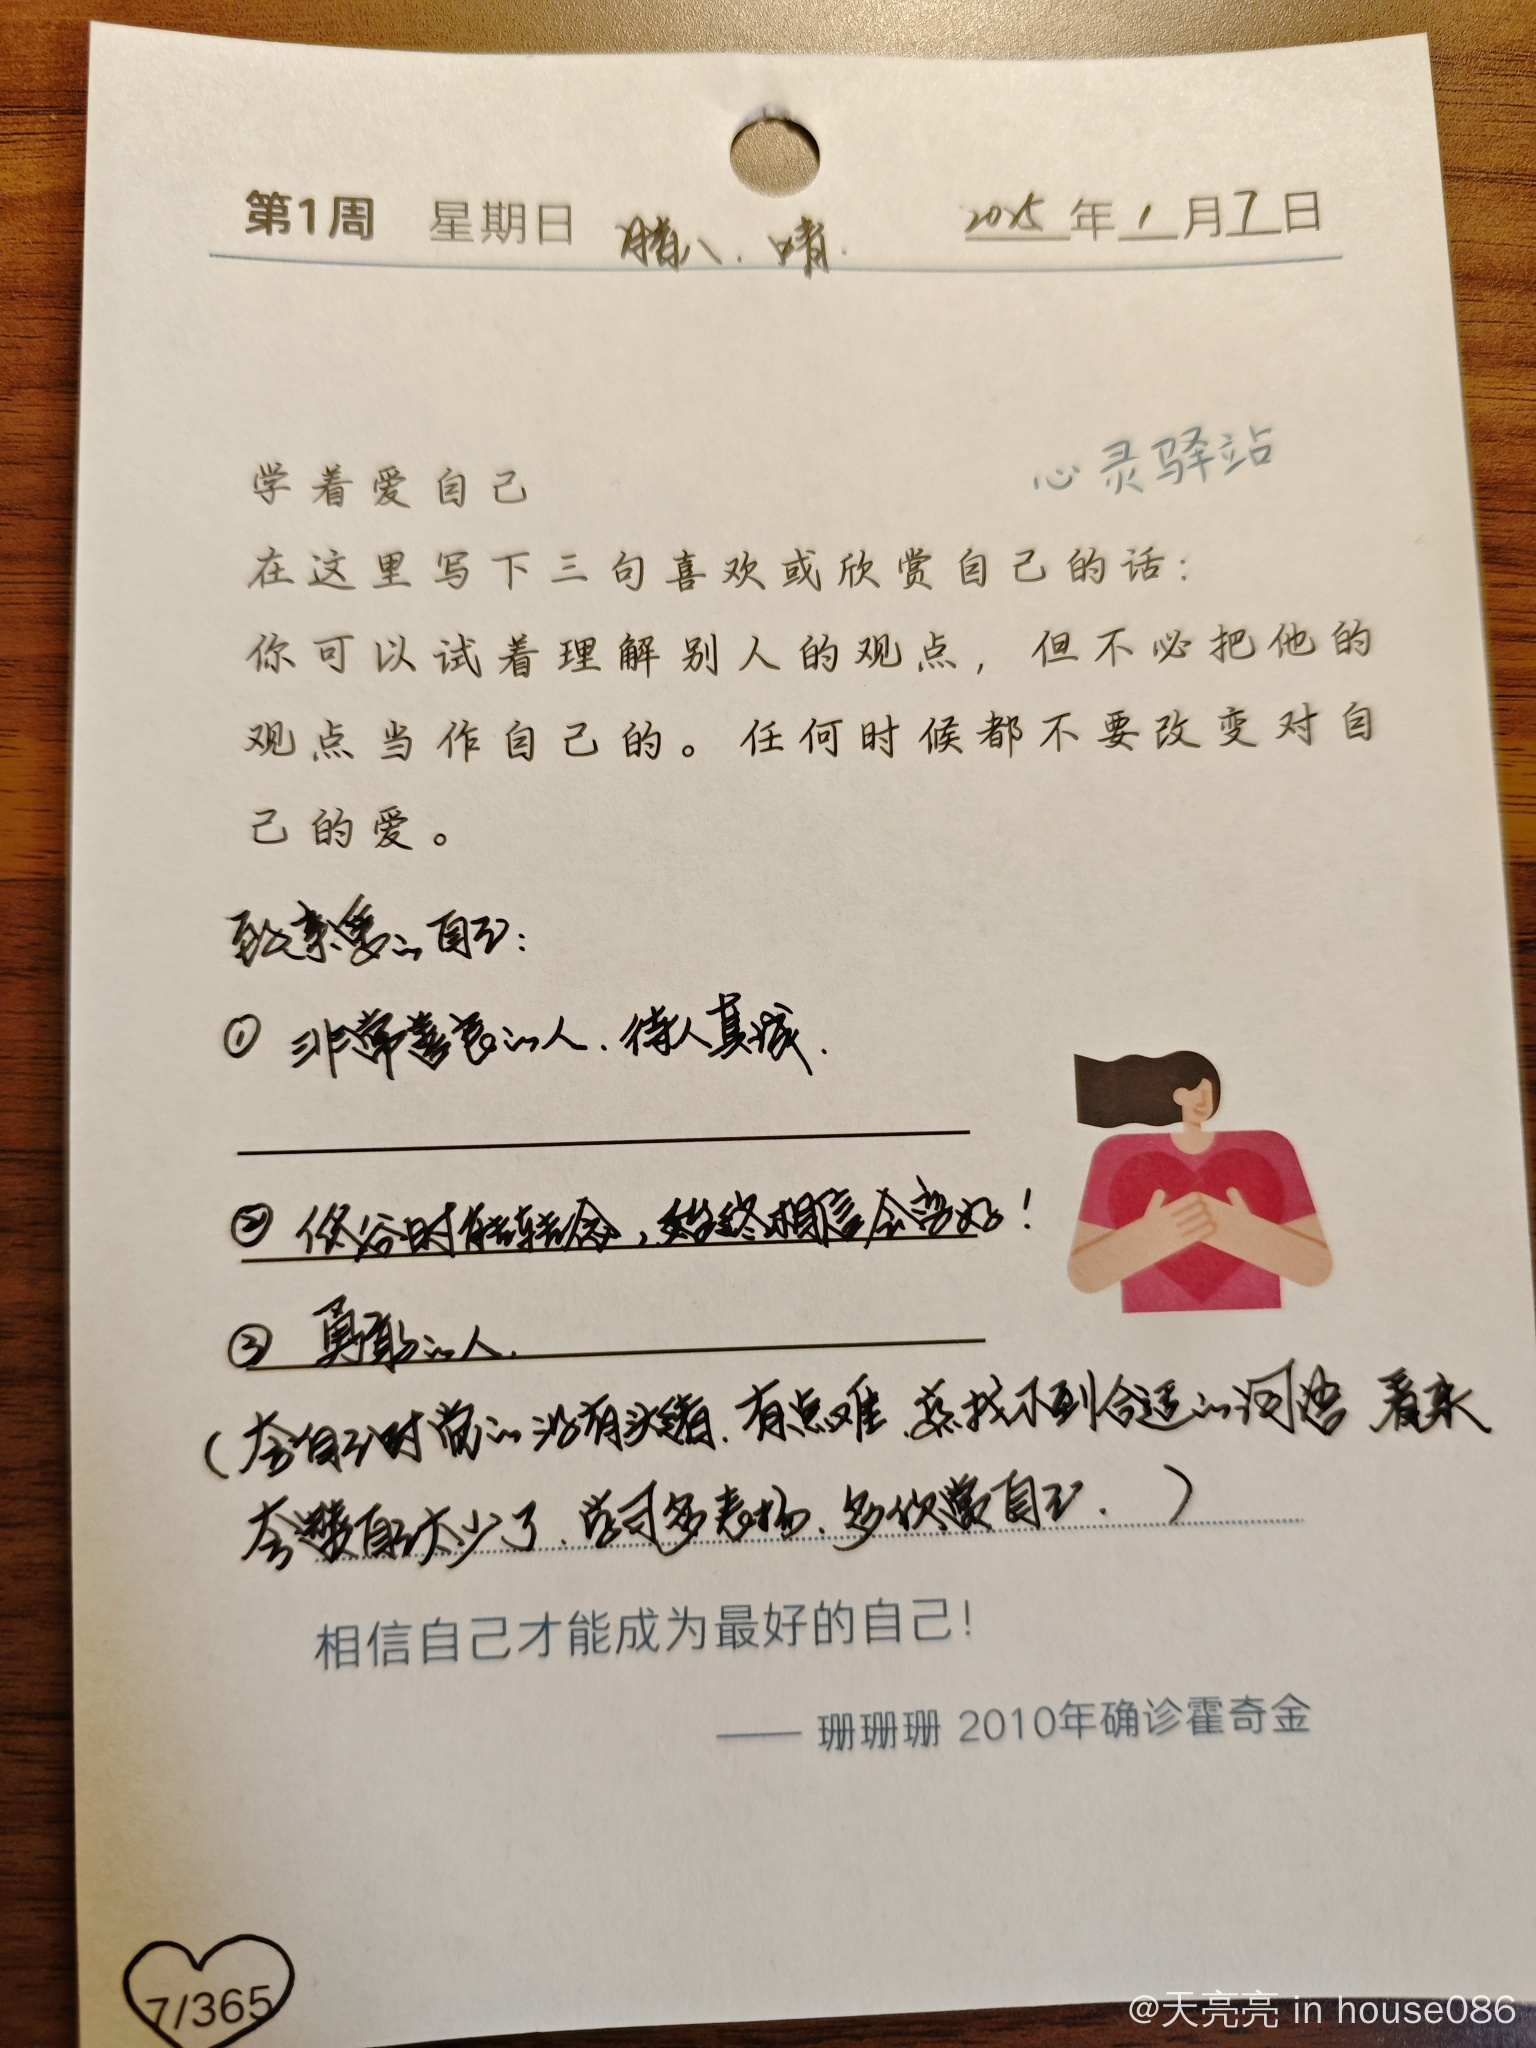 第1周 星期日 腊八. 晴. 2025年1月7日
心灵驿站
学着爱自己
在这里写下三句喜欢或欣赏自己的话：
你可以试着理解别人的观点，但不必把他的
观点当作自己的。任何时候都不要改变对自
己的爱。
致亲爱的自己：
① 非常善良的人. 待人真诚.
② 低谷时能转念，始终相信会变好！
③ 勇敢的人.
( 夸自己时 没有头绪. 有点难. 找不到合适的词语 看来
夸赞自己太少了. 多表扬. 多欣赏自己. )
相信自己才能成为最好的自己！
—— 珊珊珊 2010年确诊霍奇金
7/365
@天亮亮 in house086